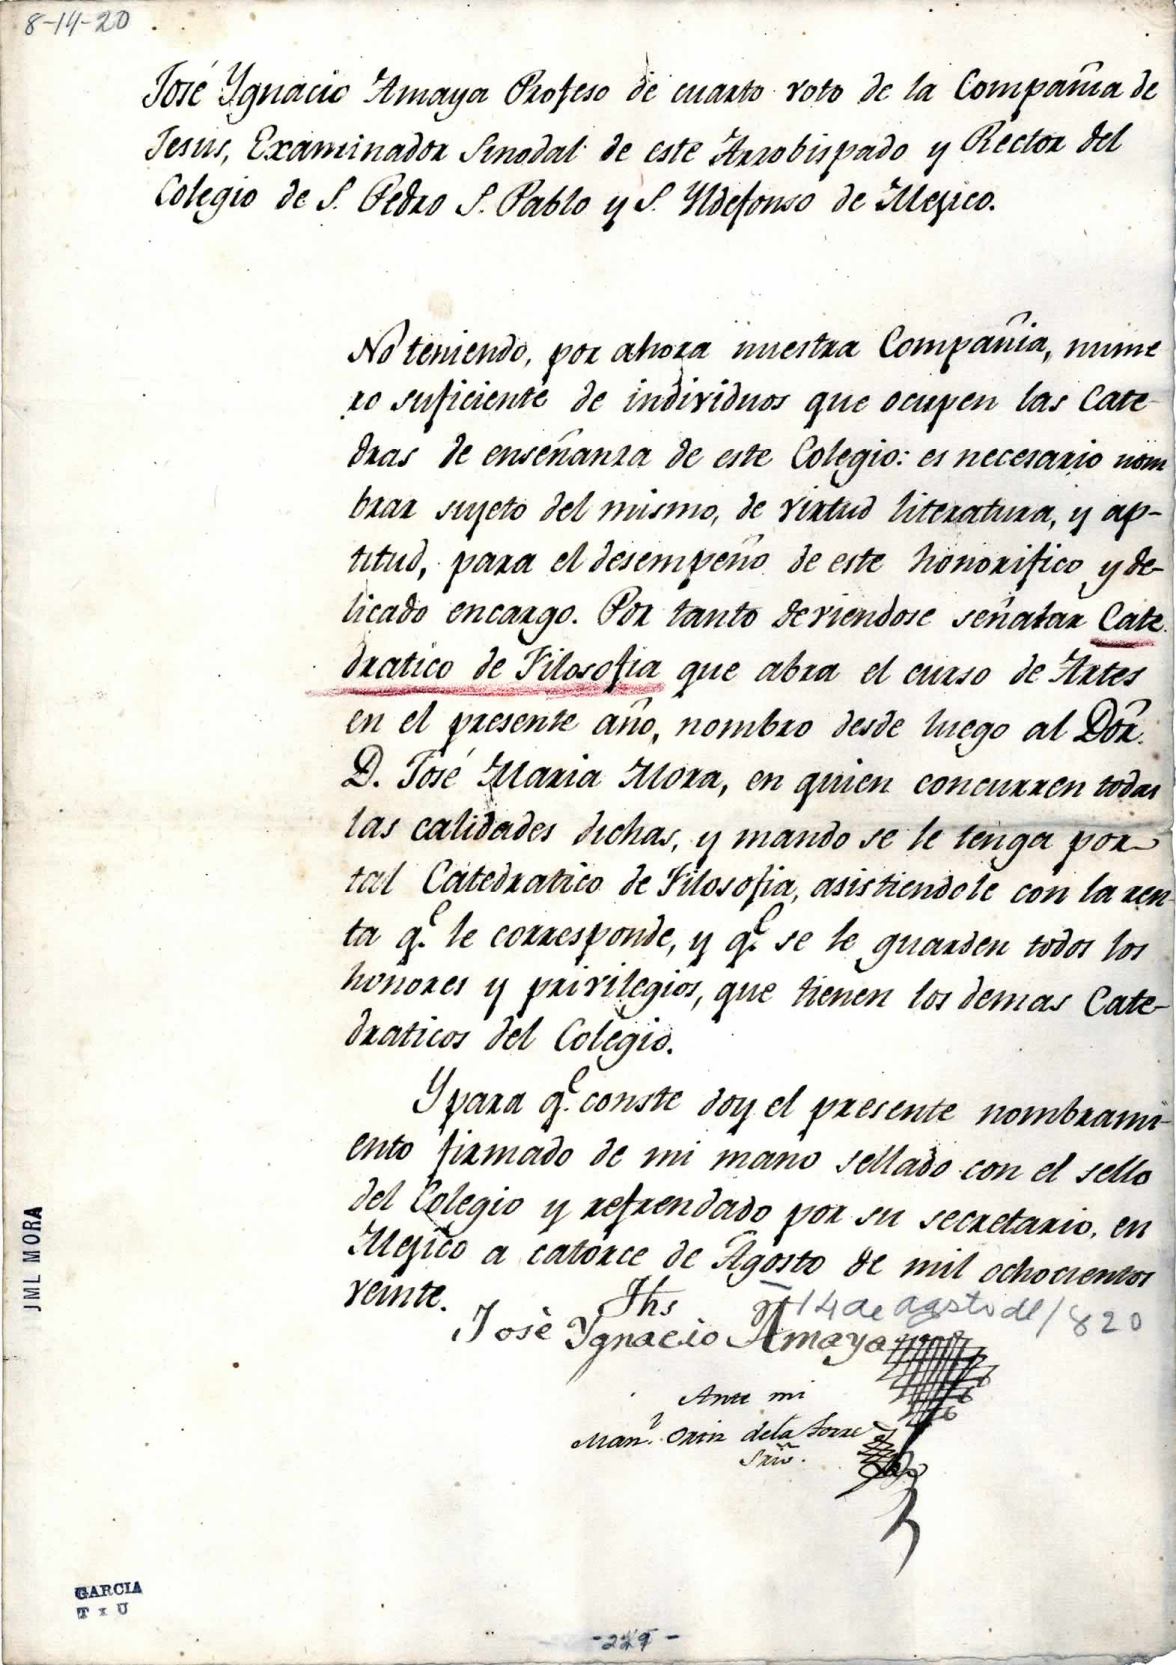 8-14-20
José Ygnacio Amaya Profeso de cuarto voto de la Compañia de
Jesus, Examinador Sinodal de este Arzobispado y Rector del
Colegio de S. Pedro S. Pablo y S. Yldefonso de Mejico.
No teniendo, por ahora nuestra Compañia, nume
ro suficiente de individuos que ocupen las Cate-
dras de enseñanza de este Colegio: es necesario nom
brar sujeto del mismo, de virtud literatura, y ap-
titud, para el desempeño de este honorifico y de-
licado encargo. Por tanto deviendose señalar Cate.
dratico de Filosofia que abra el curso de Artes
en el presente año, nombro desde luego al Dor.
D. José Maria Mora, en quien concurren todas
las calidades dichas, y mando se le tenga por
tal Catedratico de Filosofia, asistiendole con la ren-
ta q.e le corresponde, y q.e se le guarden todos los
honores y privilegios, que tienen los demas Cate-
draticos del Colegio.
Y para q.e conste doy el presente nombrami-
ento firmado de mi mano sellado con el sello
del Colegio y refrendado por su secretario, en
Mejico a catorce de Agosto de mil ochocientos
veinte.
Jhs
14 de agosto de 1820
José Ygnacio Amaya
Ante mi
Man.l Ortiz de la Torre
Srio.
JML MORA
GARCIA
T x U
-229-